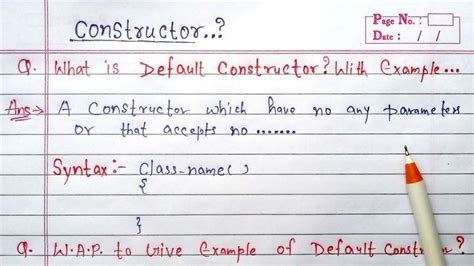 Constructor..?
Page No. :
Date : / /
Q. What is Default Constructor? With Example...
Ans:→ A Constructor which have no any parameters
or that accepts no .......
Syntax:- Class-name( )
{
}
Q. W.A.P. to Give Example of Default Constron?